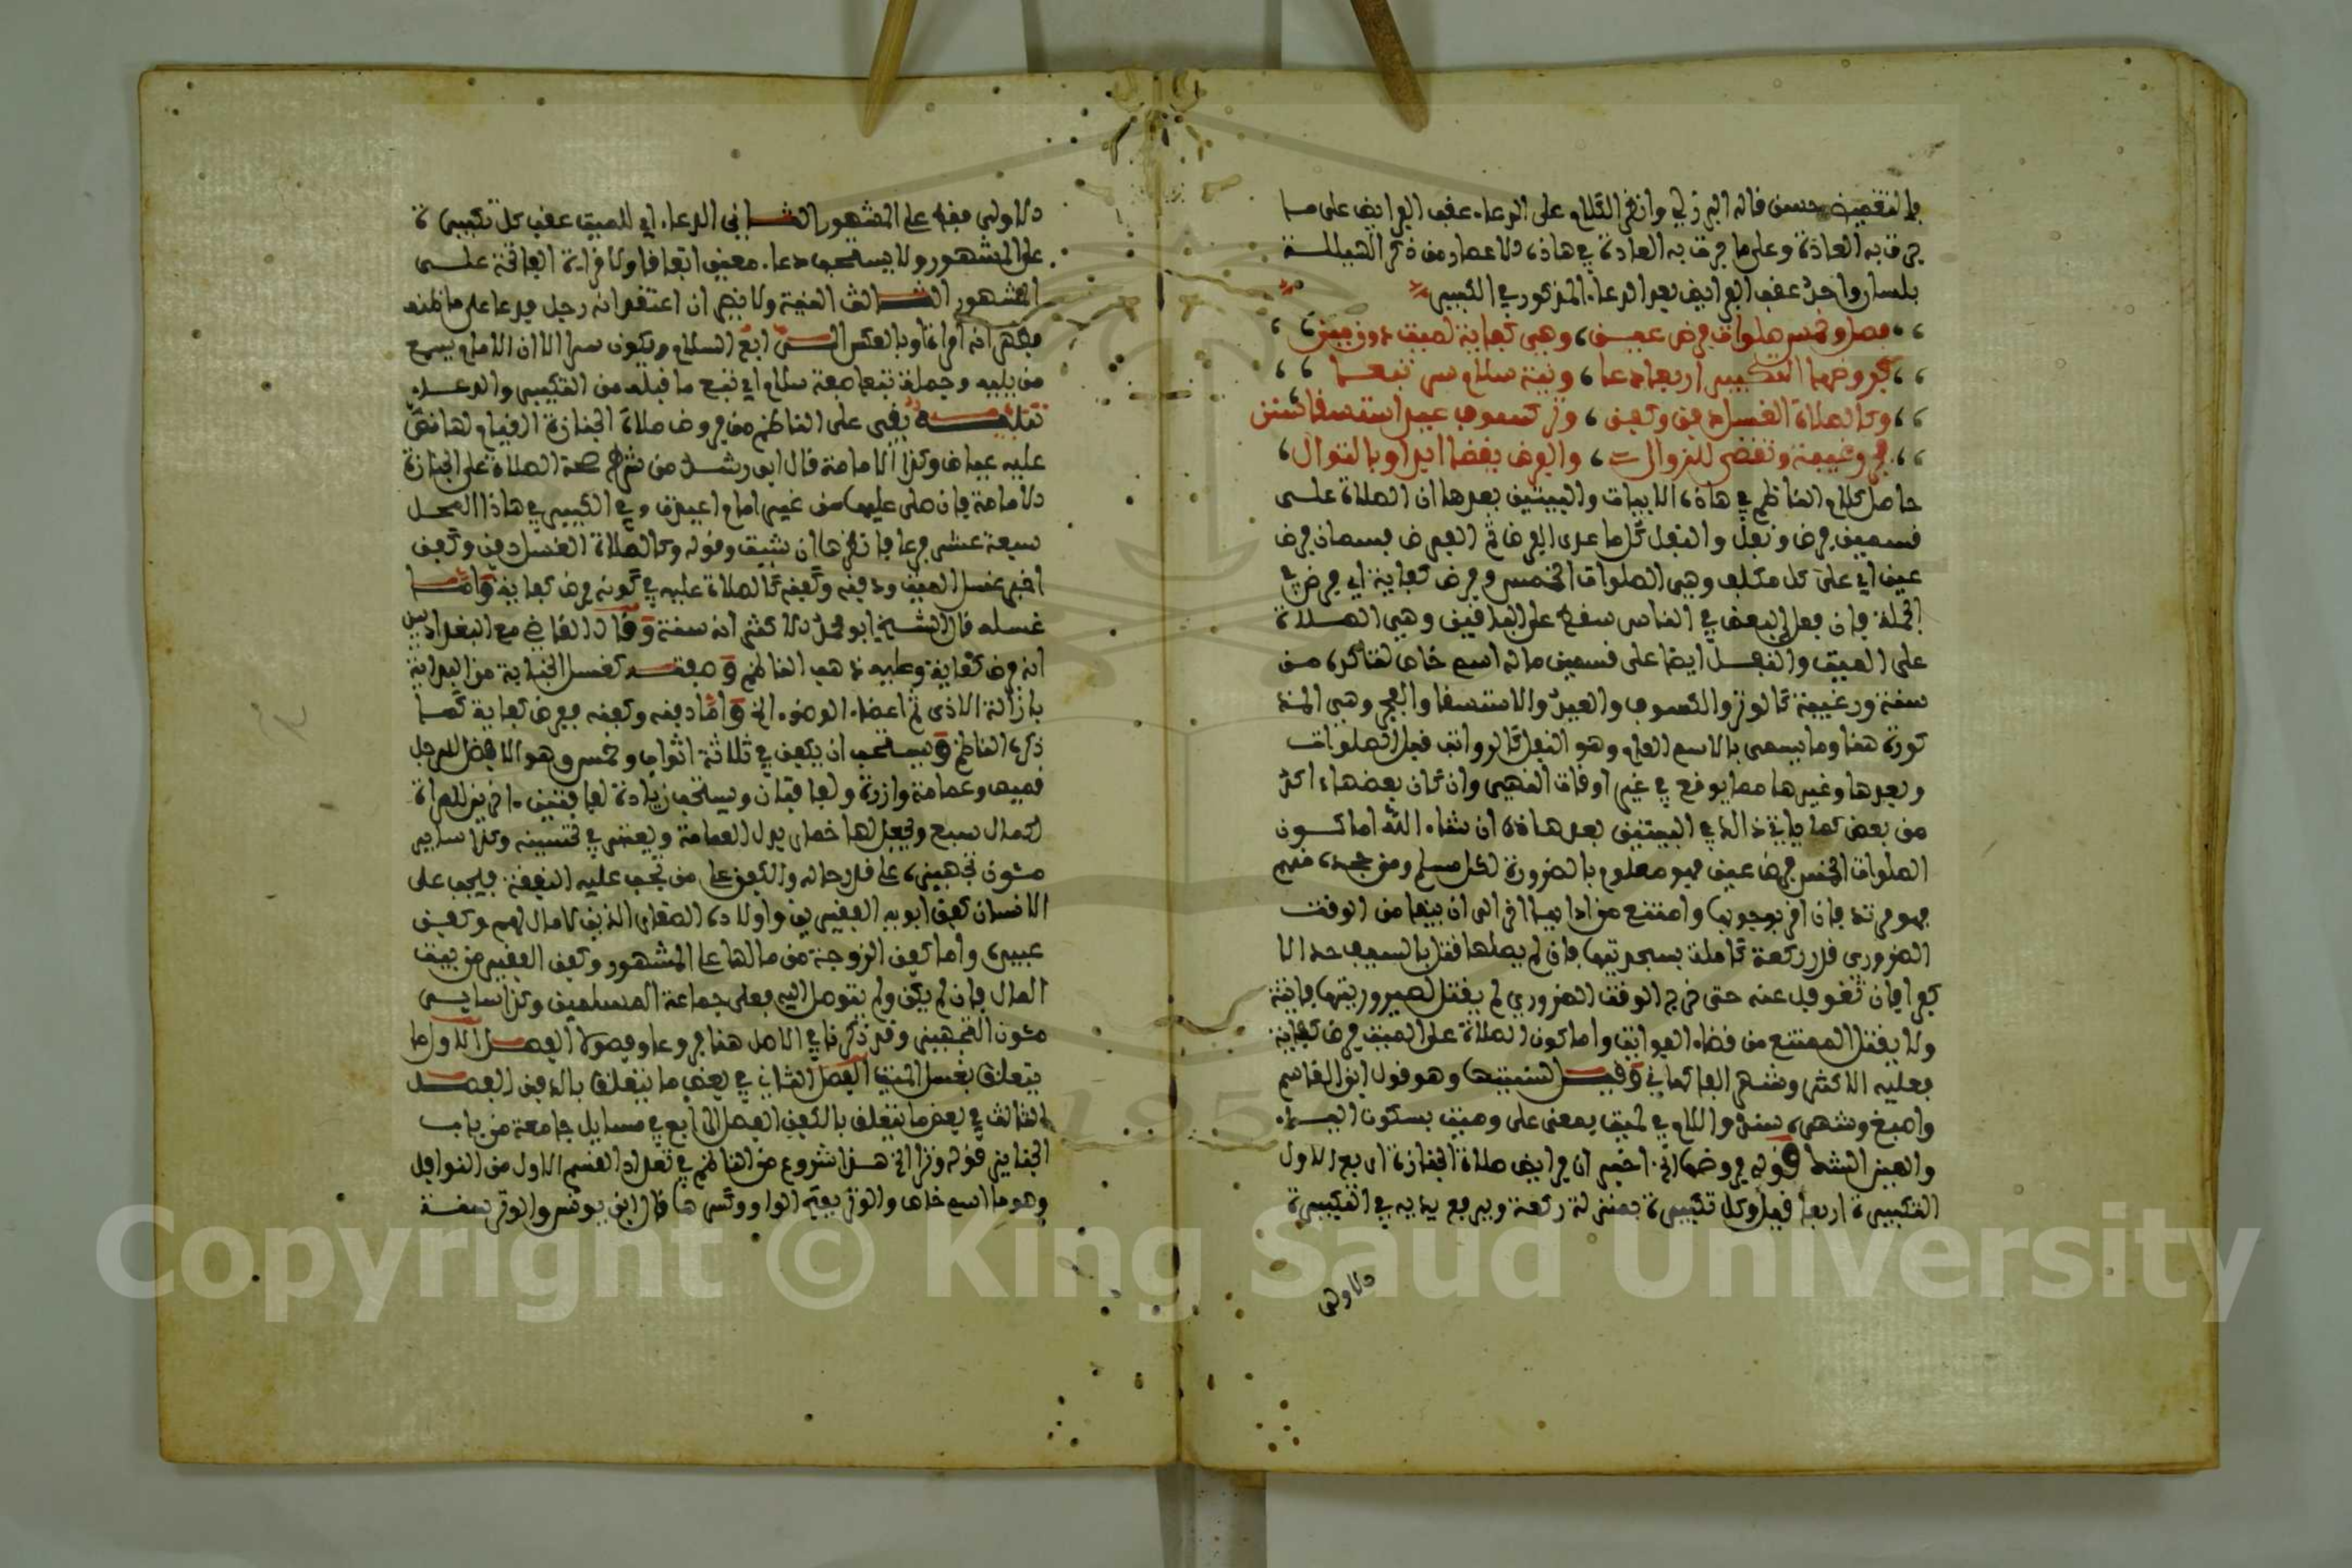 بالتفصيل حسن قاله البرزلي وانظر الكلام على الدعاء عقب الفرايض على ما
جرت به العادة وعلى ما جرت به العادة في هاذه الاعصار من ذكر الهيللة
بلسان واحد عقب الفرايض بعد الدعاء المذكور في الكبير
فصل وخمس صلوات فرض عين، وهي كفاية لميت دون مين
فروضها التكبير اربعا دعا، ونية سلام سر تبعا
وكالصلاة الغسل دفن وكفن، وتر كسوف عيد استسقا سنن
فجر رغيبة وتقضى للزوال، والفرض يقضى ابدا وبالتوال
حاصل كلام الناظم في هاذه الابيات والبيتين بعدها ان الصلاة على
قسمين فرض ونفل والنفل كل ما عدى الفرض ثم الفرض قسمان فرض
عين اي على كل مكلف وهي الصلوات الخمس وفرض كفاية اي فرض في
الجملة فان فعله البعض في الناس سقط على الباقين وهي الصلاة
على الميت والنفل ايضا على قسمين ما له اسم خاص لتاكده من
سنة ورغيبة كالوتر والكسوف والعيد والاستسقا والفجر وهي المذ
كورة هنا وما يسمى بالاسم العام وهو النفل كالرواتب قبل الصلوات
وبعدها وغيرها مما يوقع في غير اوقات النهي وان كان بعضها ءاكد
من بعض كما ياتي ذالك في البيتين بعد هاذه ان شاء الله اما كون
الصلوات الخمس فرض عين فهو معلوم بالضرورة لكل مسلم ومن جحده منهم
فهو مرتد فان اقر بوجوبها وامتنع من ادايها اخر الى ان يبقا من الوقت
الضروري قدر ركعة كاملة بسجدتيها فان لم يصلها قتل بالسيف حدا لا
كفرا فان تغوفل عنه حتى خرج الوقت الضروري لم يقتل لصيرورتها فايتة
ولا يقتل الممتنع من قضاء الفوايت واما كون الصلاة على الميت فرض كفاية
فعليه الاكثر وشهره الفاكهاني وقيل لسنيتها وهو قول ابن القاسم
واصبغ وشهره سند واللام في لميت بمعنى على وميت بسكون الياء
والمين الشك قوله فروضها الخ اخبر ان فرايض صلاة الجنازة اربع الاول
التكبيرة اربعا قيل وكل تكبيرة بمنزلة ركعة ويرفع يديه في التكبيرة
الاولى
الاولى فقط على المشهور الثاني الدعاء اي للميت عقب كل تكبيرة
على المشهور ولا يستحب دعاء معين اتفاقا ولا قراءة الفاتحة على
المشهور الثالث النية ولا يضر ان اعتقد انه رجل فدعا على ما ظنه
فظهر انه امراة او بالعكس الرابع السلام ويكون سرا الا ان الامام يسمع
من يليه وجملة تبعا صفة سلام اي تبع ما قبله من التكبير والدعاء
تنبيه بقي على الناظم من فروض صلاة الجنازة القيام لها نص
عليه عياض وكذا الامامة قال ابن رشد من شرط صحة الصلاة على الجنازة
الامامة فان صلى عليها من غير امام اعيدت وفي الكبير في هاذا المحل
سبعة عشر فرعا فانظرها ان شيت وقوله وكالصلاة الغسل دفن وكفن
اخبر غسل الميت ودفنه وكفنه كالصلاة عليه في كونه فرض كفاية واما
غسله فقال الشيخ ابو محمد والاكثر انه سنة وقال القاضي مع البغداديين
انه فرض كفاية وعليه ذهب الناظم وصفته كغسل الجنابة من البداية
بازالة الاذى ثم اعضاء الوضوء الخ واما دفنه وكفنه ففرض كفاية كما
ذكره الناظم ويستحب ان يكفن في ثلاثة اثواب وخمس وهو الافضل للرجل
قميص وعمامة وازرة ولفافتان ويستحب زيادة لفافتين اخريين للمراة
لكمال سبع ويجعل لها خمار بدل العمامة
مئون تجهيزه على قدر حاله والكفن على من تجب عليه النفقة فيجب على
الانسان كفن ابويه الفقيرين واولاده الصغار الذين لا مال لهم وكفن
عبيده واما كفن الزوجة من مالها على المشهور وكفن الفقير من بيت
المال فان لم يكن ولم يتوصل اليه فعلى جماعة المسلمين وكذا ساير
مئون التجهيز وقد ذكرنا في الاصل هنا فروعا وفصولا الفصل الاول ما
يتعلق بغسل الميت الفصل الثاني في بعض ما يتعلق بالدفن الفصل
الثالث في بعض ما يتعلق بالكفن الفصل الرابع في مسايل جامعة من باب
الجنايز قوله وتر الخ هذا شروع من الناظم في تعداد القسم الاول من النوافل
وهو ما اسم خاص والوتر بفتح الواو وكسرها قال ابن يونس والوتر سنة
Copyright © King Saud University